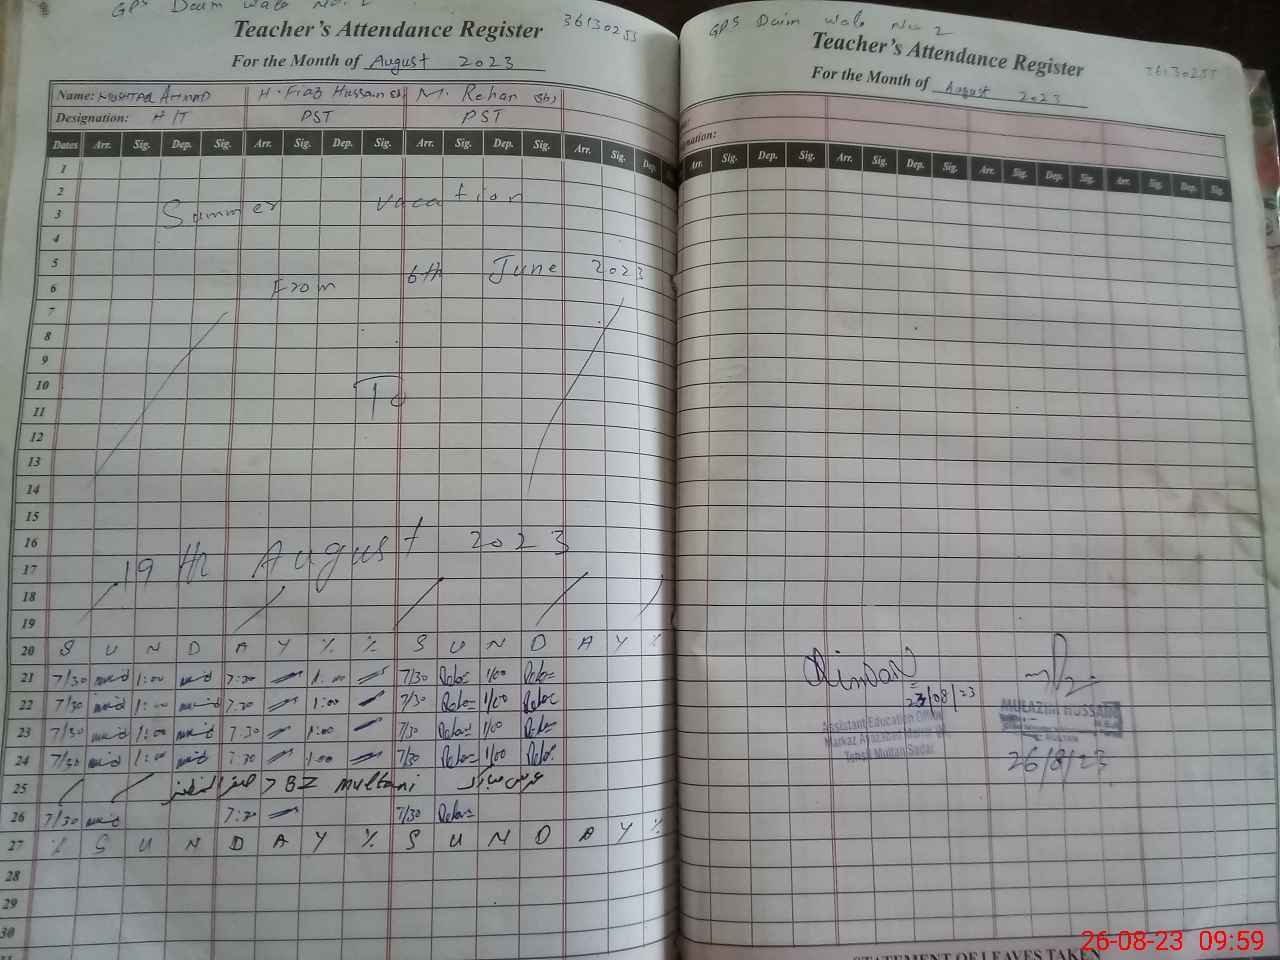 GPS Daim Wala No. 2 36130255
Teacher's Attendance Register
For the Month of August 2023
Name: Mushtaq Ahmad H. Fiaz Hussain M. Rehan
Designation: PST PST
Dates Arr. Sig. Dep. Sig. Arr. Sig. Dep. Sig. Arr. Sig. Dep. Sig. Arr. Sig. Dep.
1
2
3 Summer vacation
4
5
6 From 6th June 2023
7
8
9
10
11 To
12
13
14
15
16
17 19th August 2023
18
19
20 S U N D A Y % % S U N D A Y %
21 7/30 1:00 7:30 1:00 7/30 1/00
22 7/30 1:00 7:30 1:00 7/30 1/00
23 7/30 1:00 7:30 1:00 7/30 1/00
24 7/30 1:00 7:30 1:00 7/30 1/00
25 BZ Multani عرس مبارک
26 7/30 7:30 7/30
27 % S U N D A Y % S U N D A Y %
28
29
30
GPS Daim Wala No 2
Teacher's Attendance Register 36130255
For the Month of August 2023
Arr. Sig. Dep. Sig. Arr. Sig. Dep. Sig. Arr. Sig. Dep. Sig. Arr. Sig. Dep. Sig.
23/08/23
Assistant Education Officer
Markaz
Tehsil Multan Sadar
MULAZIM HUSSAIN
26/8/23
STATEMENT OF LEAVES TAKEN
26-08-23 09:59